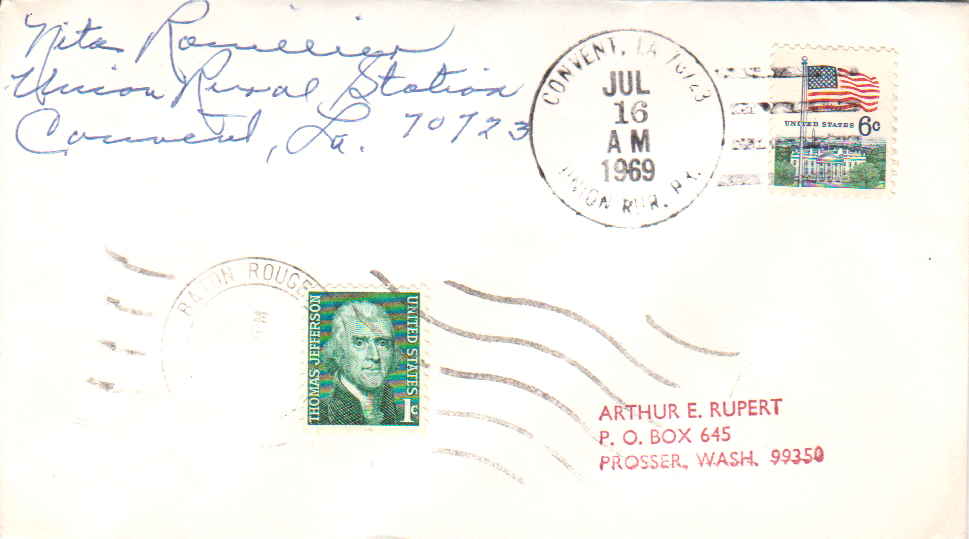 Nita
Union Rural Station
Convent, La. 70723
CONVENT, LA 70723
JUL
16
AM
1969
UNION RUR. STA.
UNITED STATES 6c
BATON ROUGE
PM
THOMAS JEFFERSON
UNITED STATES
1c
ARTHUR E. RUPERT
P. O. BOX 645
PROSSER, WASH. 99350